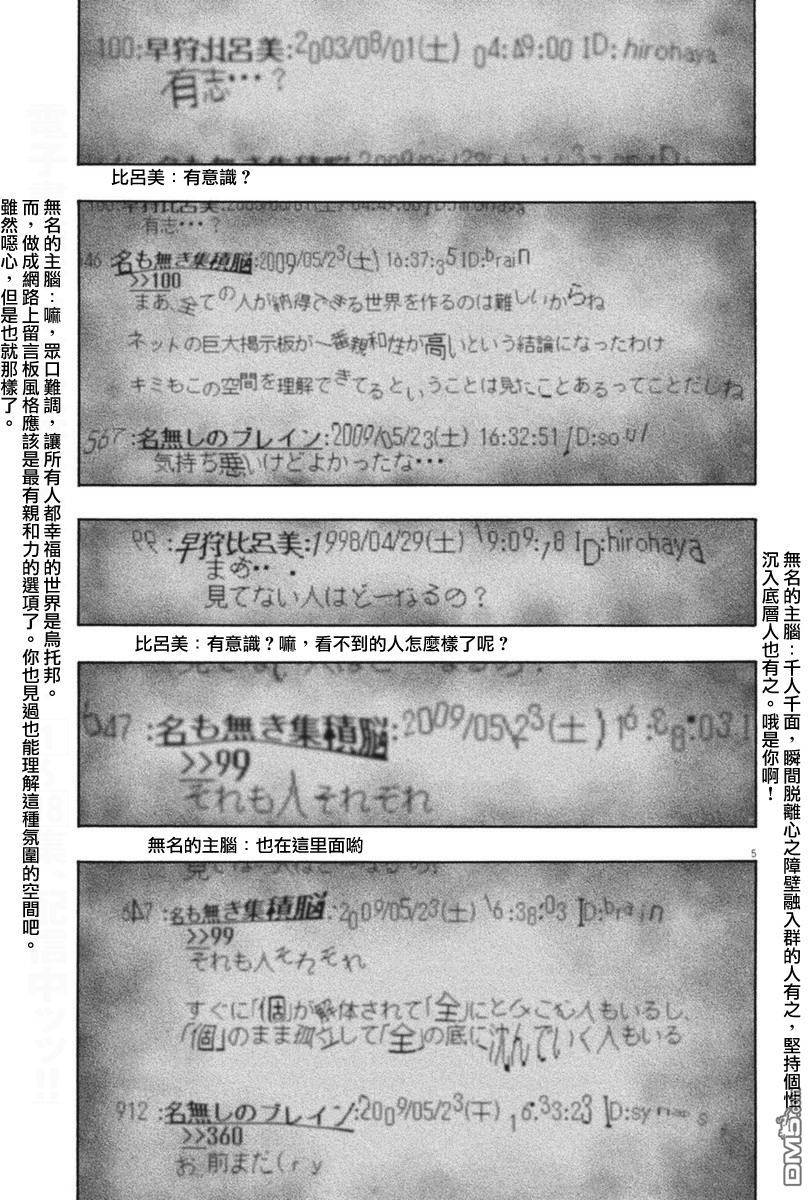 100:早狩比呂美:2003/08/01(土) 04:49:00 ID:hirohaya
有志…？
比呂美：有意識？
100:早狩比呂美:2003/08/01(土) 04:49:00 ID:hirohaya
有志…？
646:名も無き集積脳:2009/05/23(土) 16:37:35 ID:brain
>>100
まあ、全ての人が納得できる世界を作るのは難しいからね
ネットの巨大掲示板が一番親和性が高いという結論になったわけ
キミもこの空間を理解できてるということは見たことあるってことだしね
567:名無しのブレイン:2009/05/23(土) 16:32:51 ID:soul
気持ち悪いけどよかったな…
無名的主腦：嘛，眾口難調，讓所有人都幸福的世界是烏托邦。
而，做成網路上留言板風格應該是最有親和力的選項了。你也見過也能理解這種氛圍的空間吧。
雖然噁心，但是也就那樣了。
99:早狩比呂美:1998/04/29(土) 19:09:78 ID:hirohaya
まぁ・・
見てない人はどーなるの？
比呂美：有意識？嘛，看不到的人怎麼樣了呢？
647:名も無き集積脳:2009/05/23(土) 16:38:03 I
>>99
それも人それぞれ
無名的主腦：也在這里面喲
5
647:名も無き集積脳:2009/05/23(土) 16:38:03 ID:brain
>>99
それも人それぞれ
すぐに「個」が解体されて「全」にとけこむ人もいるし、
「個」のまま孤立して「全」の底に沈んでいく人もいる
912:名無しのブレイン:2009/05/23(干) 16:33:23 ID:synaps
>>360
お前まだ(ry
無名的主腦：千人千面，瞬間脱離心之障壁融入群的人有之，堅持個性
沉入底層人也有之。哦是你啊！
DM5